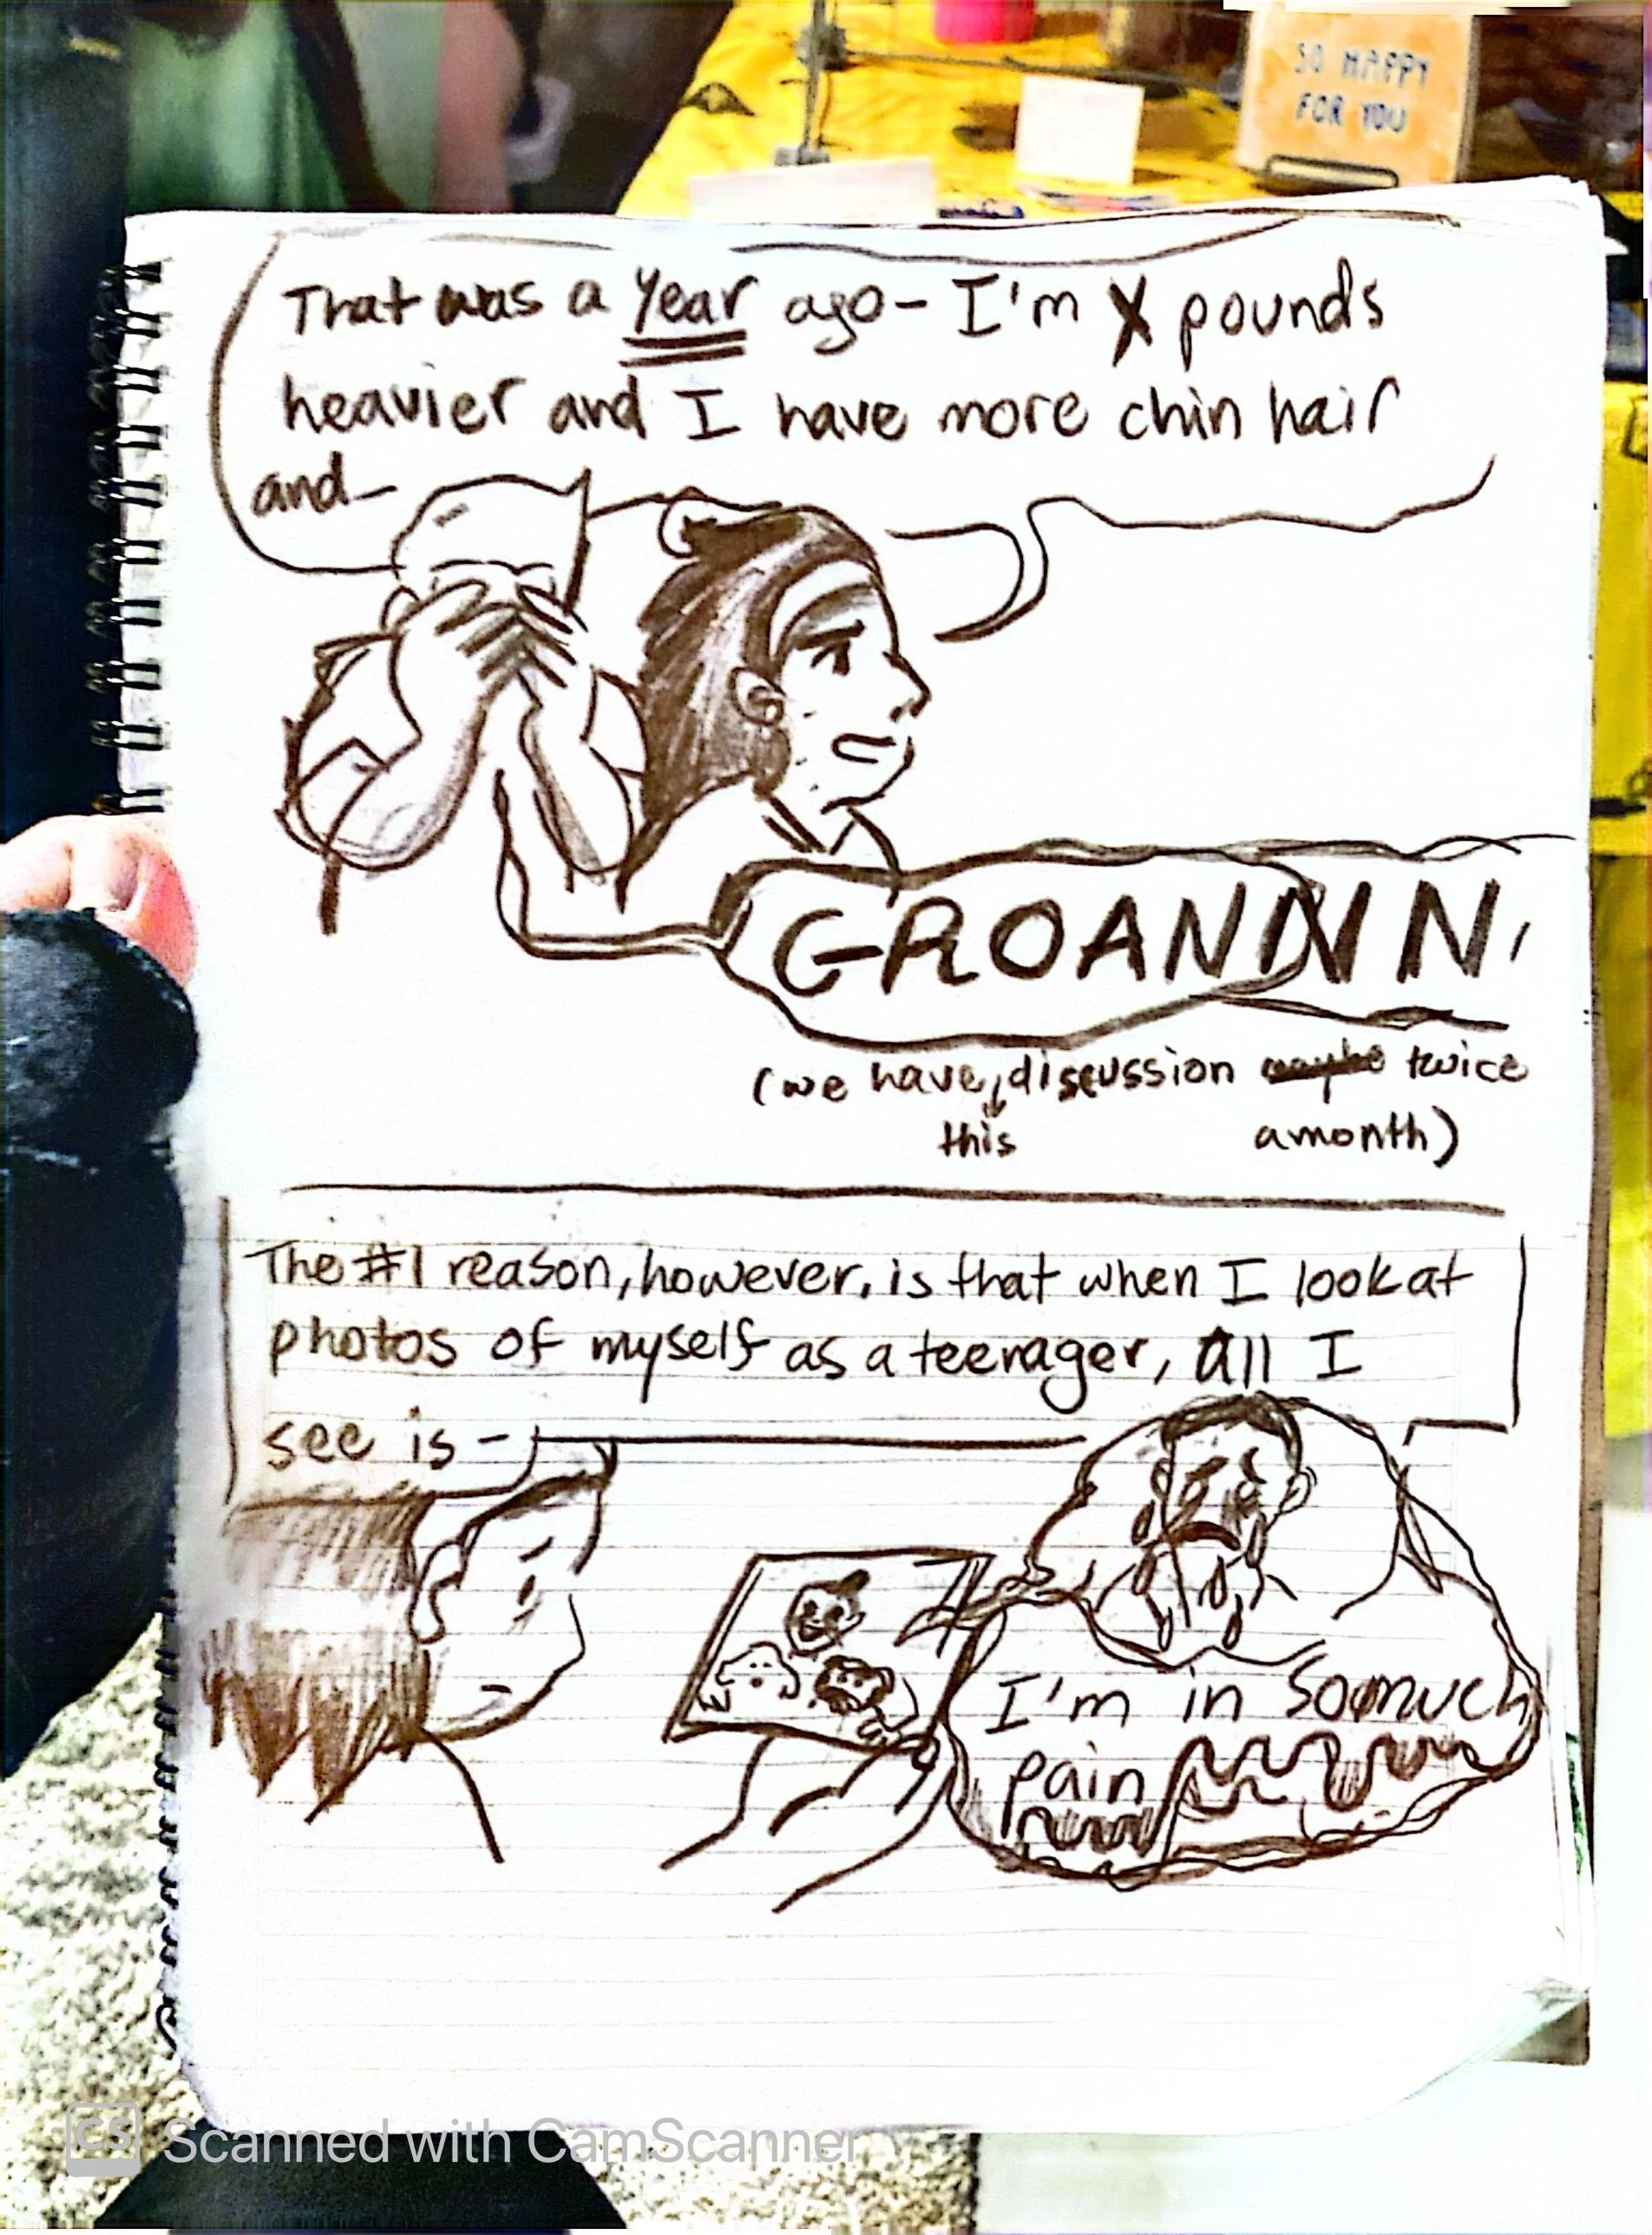 SO HAPPY
FOR YOU
That was a year ago- I'm X pounds
heavier and I have more chin hair
and-
GROANNNN
(we have, discussion twice
this
a month)
The #1 reason, however, is that when I look at
photos of myself as a teenager, all I
see is -
I'm in so much
pain
CS Scanned with CamScanner